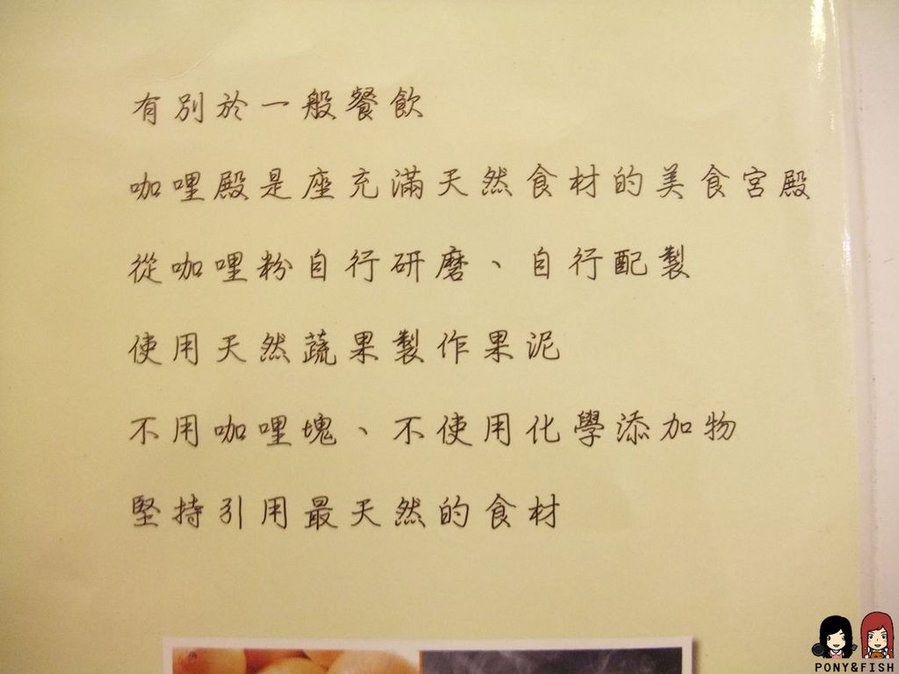 有別於一般餐飲
咖哩殿是座充滿天然食材的美食宮殿
從咖哩粉自行研磨、自行配製
使用天然蔬果製作果泥
不用咖哩塊、不使用化學添加物
堅持引用最天然的食材
PONY&FISH